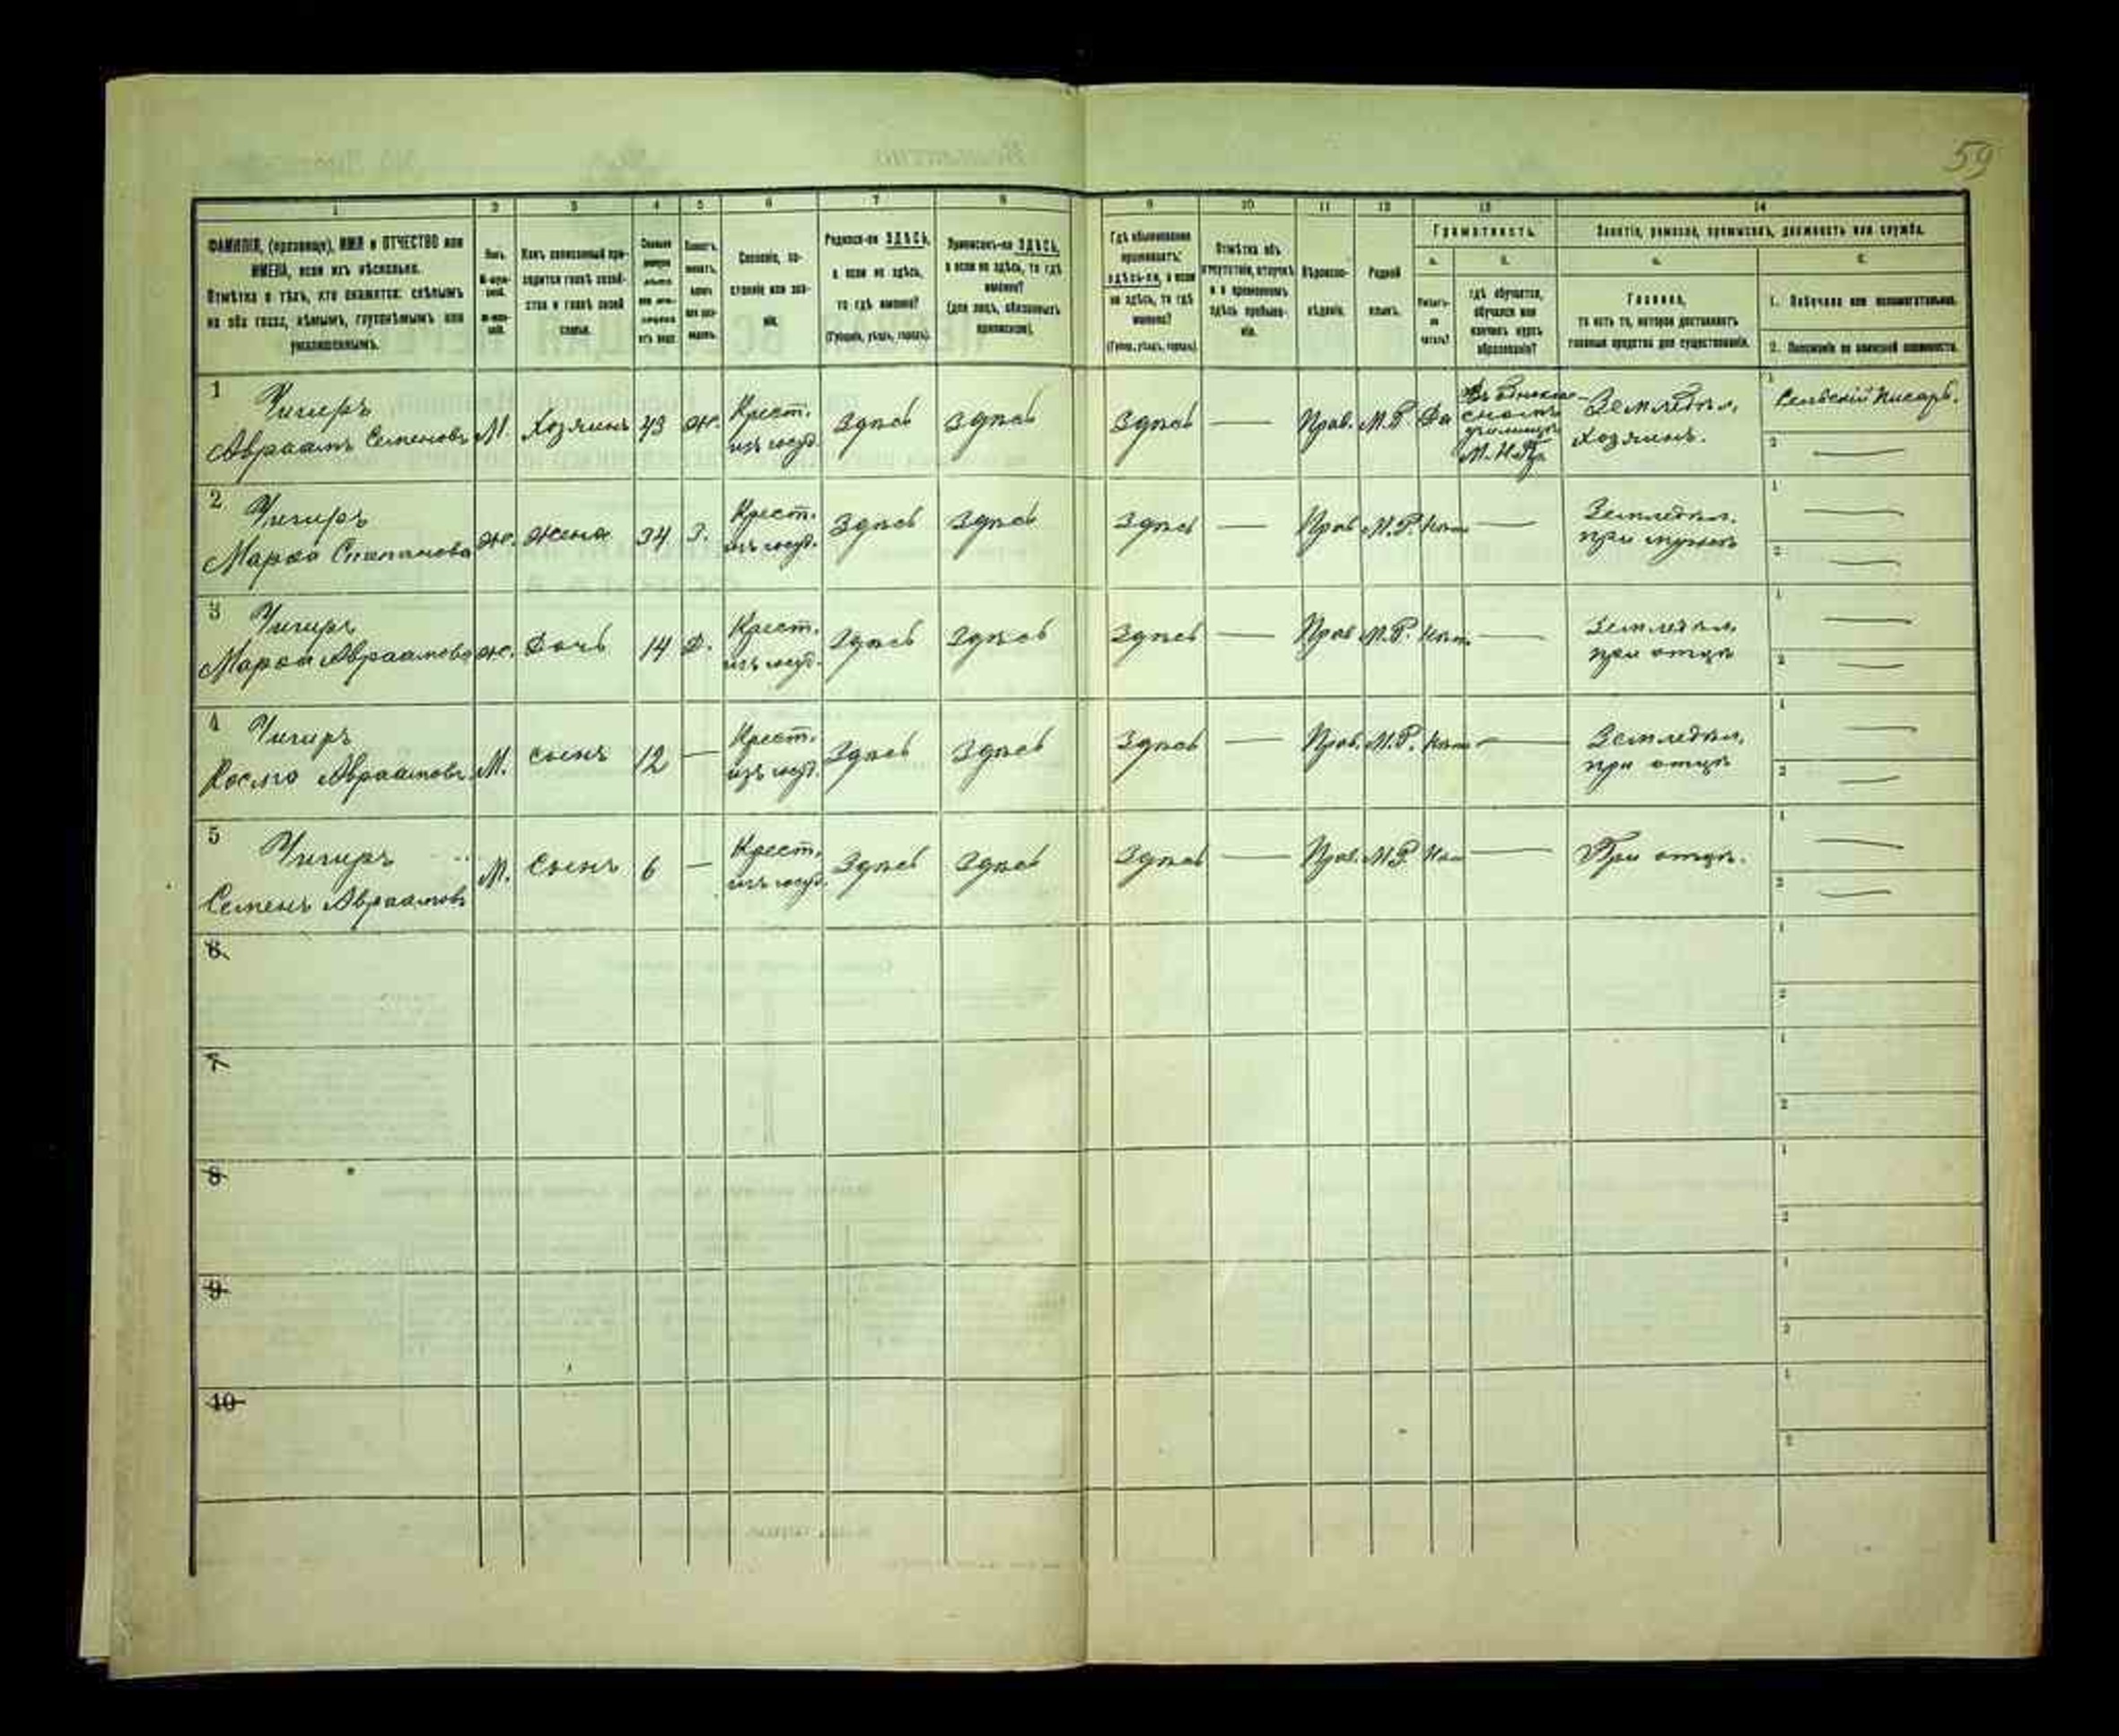 59
1 2 3 4 5 6 7 8 9 10 11 12 13 14
ФАМИЛІЯ, (прозвище), ИМЯ и ОТЧЕСТВО или
ИМЕНА, если ихъ нѣсколько.
Отмѣтка о тѣхъ, кто окажется: слѣпымъ
на оба глаза, нѣмымъ, глухонѣмымъ или
умалишеннымъ.
Полъ.
Какъ записанный при-
ходится главѣ хозяй-
ства и главѣ своей
семьи.
Сословіе, со-
стояніе или зва-
ніе.
Родился-ли ЗДѢСЬ,
а если не здѣсь,
то гдѣ именно?
(Губернія, уѣздъ, городъ).
Приписанъ-ли ЗДѢСЬ,
а если не здѣсь, то гдѣ
именно?
(для лицъ, обязанныхъ
припискою).
Гдѣ обыкновенно
проживаетъ:
здѣсь-ли, а если
не здѣсь, то гдѣ
именно?
(Губер., уѣздъ, городъ).
Отмѣтка объ
отсутствіи, отлучкѣ
и о временномъ
здѣсь пребыва-
ніи.
Вѣроиспо-
вѣданіе.
Родной
языкъ.
Грамотность.
а. б.
Умѣетъ-
ли
читать?
гдѣ обучается,
обучался или
кончилъ курсъ
образованія?
Занятіе, ремесло, промыселъ, должность или служба.
а. б.
Главное,
то есть то, которое доставляетъ
главныя средства для существованія.
1. Побочное или вспомогательное.
2. Положеніе по воинской повинности.
1 Чигиръ
Авраамъ Семеновъ М. Хозяинъ 43 Ж. Крест. изъ госуд. Здѣсь Здѣсь Здѣсь — Прав. М.Р. Да
училищѣ
М.Н.Пр.
Земледѣл.
хозяинъ.
1 Сельскій писарь.
2 —
2 Чигиръ
Марѳа Степанова Ж. Жена 34 З. Крест. изъ госуд. Здѣсь Здѣсь Здѣсь — Прав. М.Р. Нѣтъ —
Земледѣл.
при мужѣ
1 —
2 —
3 Чигиръ
Марѳа Авраамова Ж. Дочь 14 Д. Крест. изъ госуд. Здѣсь Здѣсь Здѣсь — Прав. М.Р. Нѣтъ —
Земледѣл.
при отцѣ
1 —
2 —
4 Чигиръ
Косма Авраамовъ М. Сынъ 12 — Крест. изъ госуд. Здѣсь Здѣсь Здѣсь — Прав. М.Р. Нѣтъ —
Земледѣл.
при отцѣ
1 —
2 —
5 Чигиръ
Семенъ Авраамовъ М. Сынъ 6 — Крест. изъ госуд. Здѣсь Здѣсь Здѣсь — Прав. М.Р. Нѣтъ —
При отцѣ.
1 —
2 —
6
1
2
7
1
2
8
1
2
9
1
2
10
1
2